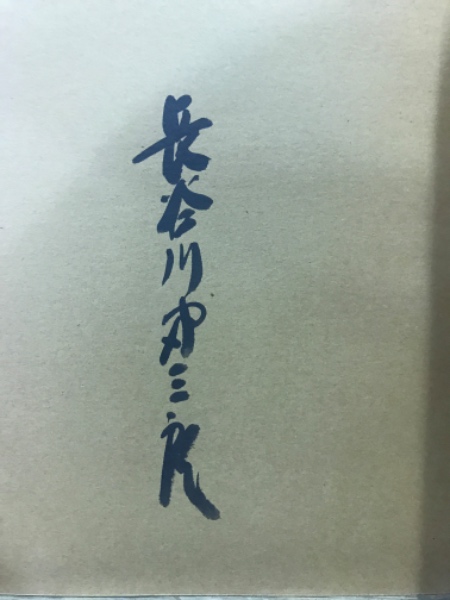 長谷川周三郎